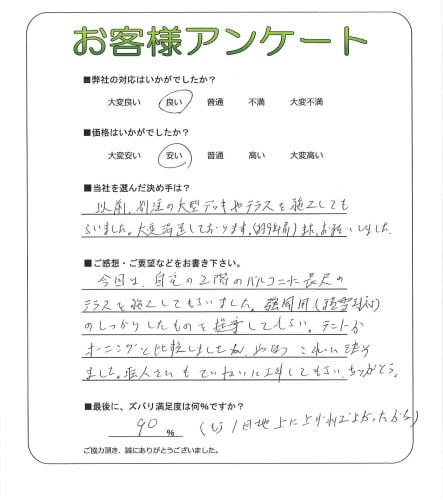 お客様アンケート
■弊社の対応はいかがでしたか？
大変良い 良い 普通 不満 大変不満
■価格はいかがでしたか？
大変安い 安い 普通 高い 大変高い
■当社を選んだ決め手は？
以前、別注の大型デッキやテラスを施工しても
らいました。大変満足しております。(約9年前) 又、お願いしました
■ご感想・ご要望などをお書き下さい。
今回は、自宅の2階のバルコニーに長尺の
テラスを施工してもらいました。強風用(積雪対応)
のしっかりしたものを提案してもらい。テントか
オーニングと比較しましたが、やはり これに決め
ました。職人さんも ていねいに工事してもらい、ありがとう。
■最後に、ズバリ満足度は何%ですか？
90 %
ご協力頂き、誠にありがとうございました。